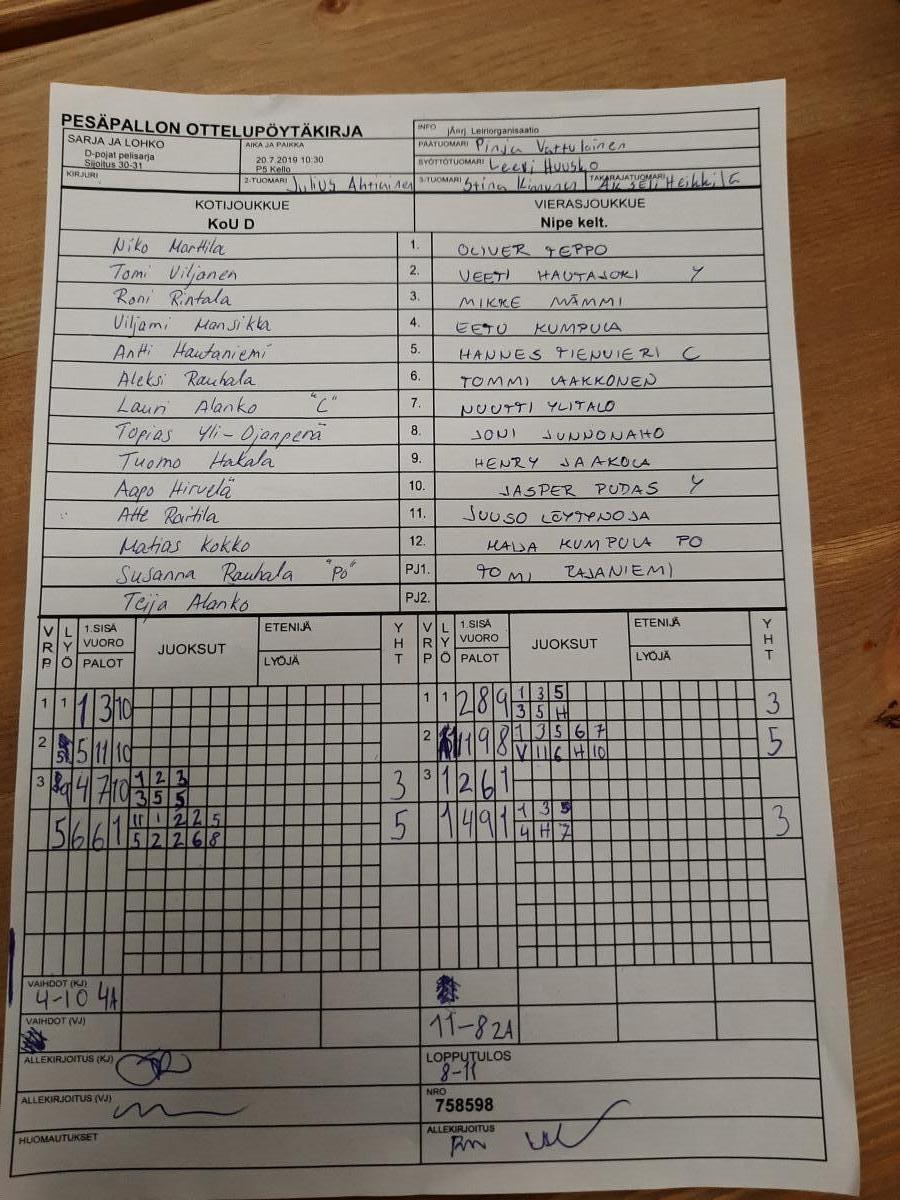 PESÄPALLON OTTELUPÖYTÄKIRJA
INFO jÄnrj Leiriorganisaatio
SARJA JA LOHKO
D-pojat pelisarja
Sijoitus 30-31
AIKA JA PAIKKA
20.7.2019 10:30
P5 Kello
PÄÄTUOMARI Pinja Vattulainen
SYÖTTÖTUOMARI Leevi Huusko
KIRJURI
2-TUOMARI Julius Ahtiainen
3-TUOMARI Stina Kinnunen
TAKARAJATUOMARI Akseli Heikkilä
KOTIJOUKKUE VIERASJOUKKUE
KoU D Nipe kelt.
Niko Marttila 1. OLIVER TEPPO
Tomi Viljanen 2. VEETI HAUTAJOKI Y
Roni Rintala 3. MIKKE MÄMMI
Viljami Mansikka 4. EETU KUMPULA
Antti Hautaniemi 5. HANNES TIENVIERI C
Aleksi Rauhala 6. TOMMI LAAKKONEN
Lauri Alanko "C" 7. NUUTTI YLITALO
Topias Yli-Ojanperä 8. JONI JUNNONAHO
Tuomo Hakala 9. HENRY JAAKOLA
Aapo Hirvelä 10. JASPER PUDAS Y
Atte Raitila 11. JUUSO LÖYTYNOJA
Matias Kokko 12. MAIJA KUMPULA PO
Susanna Rauhala "Po" PJ1. TOMI RAJANIEMI
Teija Alanko PJ2.
VRP LYÖ 1.SISÄ VUORO PALOT JUOKSUT ETENIJÄ LYÖJÄ YHT VRP LYÖ 1.SISÄ VUORO PALOT JUOKSUT ETENIJÄ LYÖJÄ YHT
1 1 1 3 10 1 1 2 8 9 1 3 5 3
3 5 H
2 5 5 11 10 2 11 1 9 8 1 3 5 6 7 5
V 11 6 H 10
3 9 4 7 10 1 2 3 3 3 1 2 6 1
3 5 5
5 6 6 1 11 1 2 2 5 5 1 4 9 1 1 3 5 3
5 2 2 6 8 4 H 7
VAIHDOT (KJ)
4-10 4A
VAIHDOT (VJ)
11-8 2A
ALLEKIRJOITUS (KJ)
LOPPUTULOS
8-11
ALLEKIRJOITUS (VJ)
NRO
758598
HUOMAUTUKSET
ALLEKIRJOITUS